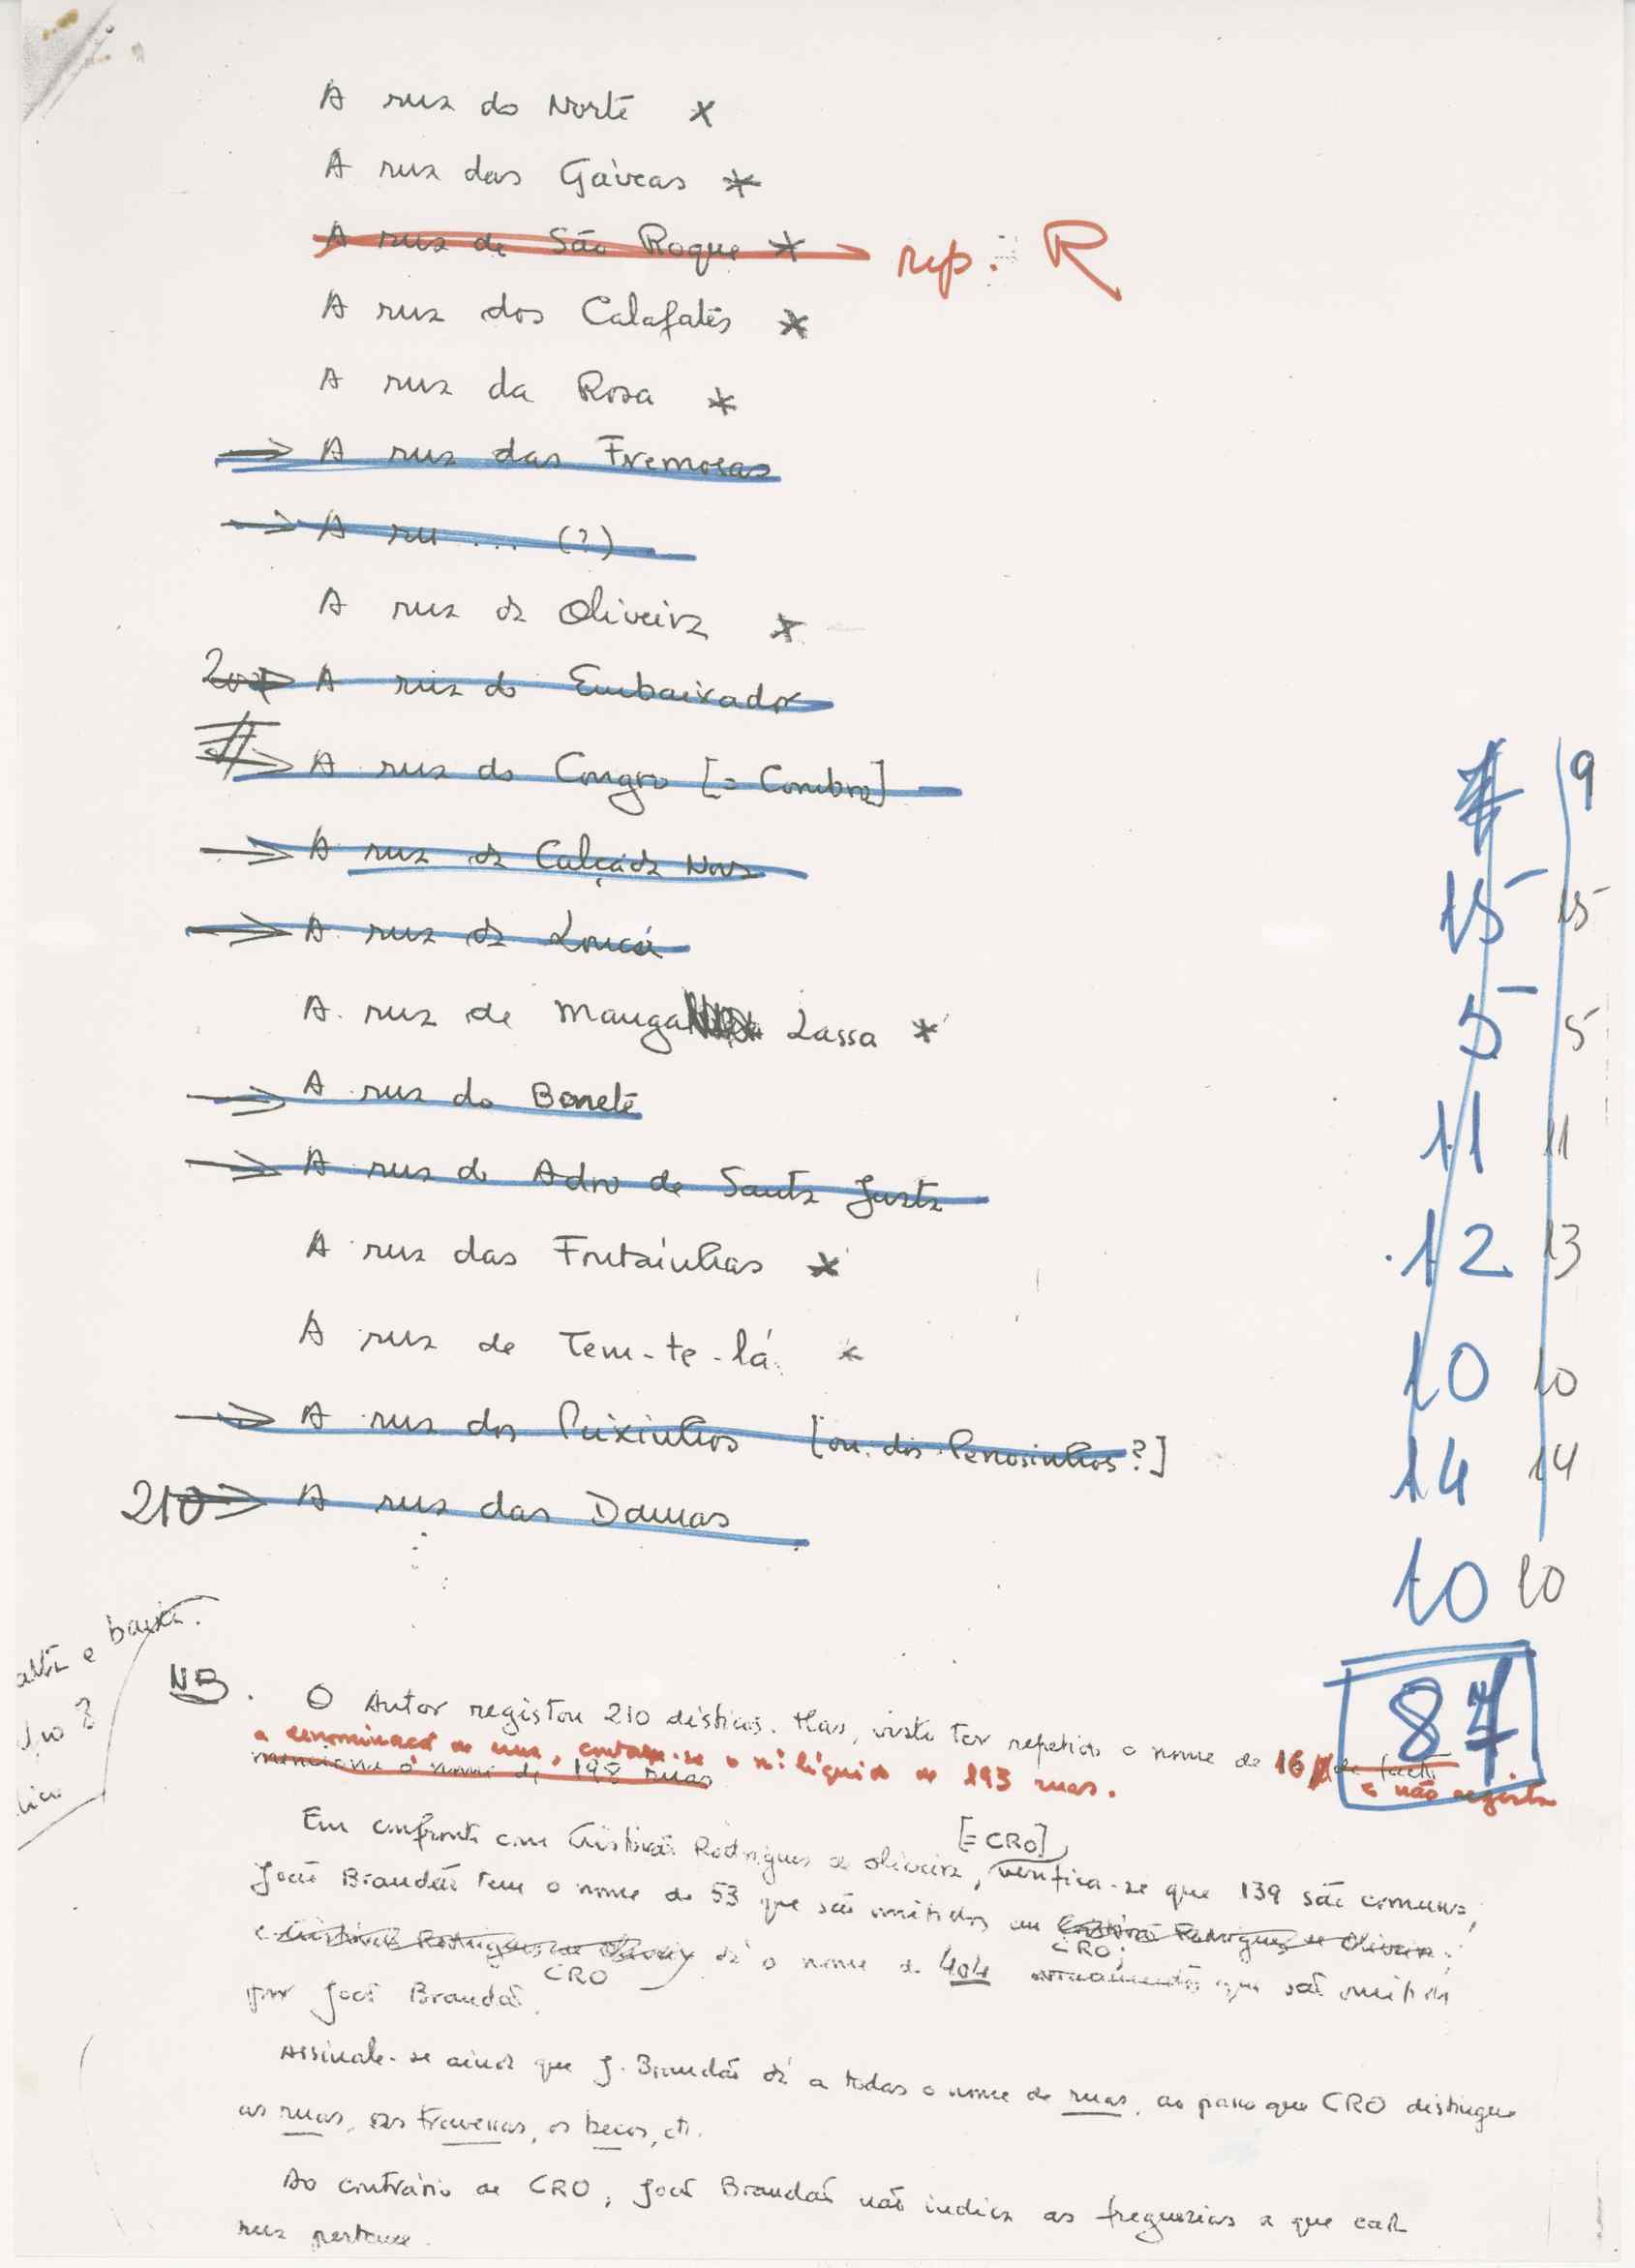 A rua do Norte x
A rua das Gáveas *
A rua de São Roque * rep. R
A rua dos Calafates *
A rua da Rosa *
→ A rua das Fremosas
→ A ru.... (?)
A rua da Oliveira *
→ A rua do Embaixador
→ A rua do Congro [= Combro]
→ A rua da Calçada Nova
→ A rua da Loucã
A rua de Manga Lassa *
→ A rua do Bonete
→ A rua do Adro de Santa Justa
A rua das Frutainhas *
A rua de Tem-te-lá *
→ A rua dos Peixinhos [ou dos Penosinhos?]
210 → A rua das Damas
9
15 15
5 5
11 11
12 13
10 10
14 14
10 10
87
alta e baixa.
NB. O Autor registou 210 dísticos. Mas, visto ter repetido o nome de 16 de facto
a denominação de ruas, contam-se o nº líquido de 193 ruas. e não regista
menciona o nome de 198 ruas
Em confronto com Cristóvão Rodrigues de Oliveira [= CRO], verifica-se que 139 são comuns,
João Brandão tem o nome de 53 que são omitidos em Cristóvão Rodrigues de Oliveira;
CRO;
e Cristóvão Rodrigues de Oliveira dá o nome de 404 arruamentos que são omitidos
CRO
por João Brandão.
Assinale-se ainda que J. Brandão dá a todas o nome de ruas, ao passo que CRO distingue
as ruas, as travessas, os becos, etc.
Ao contrário de CRO, João Brandão não indica as freguesias a que cada
rua pertence.